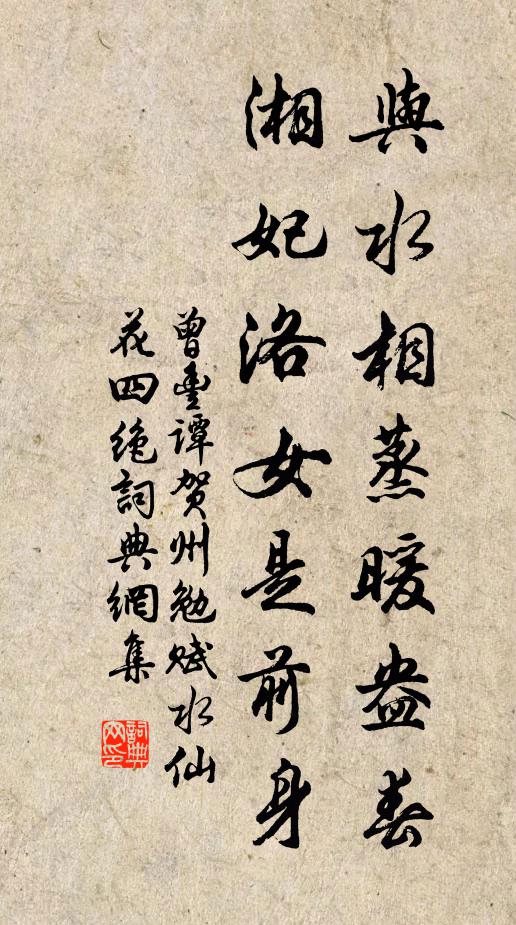 與水相蒸暖盎春
湘妃洛女是前身
曾豊譚贺州勉赋水仙
花四绝詞典網集
詞典网印